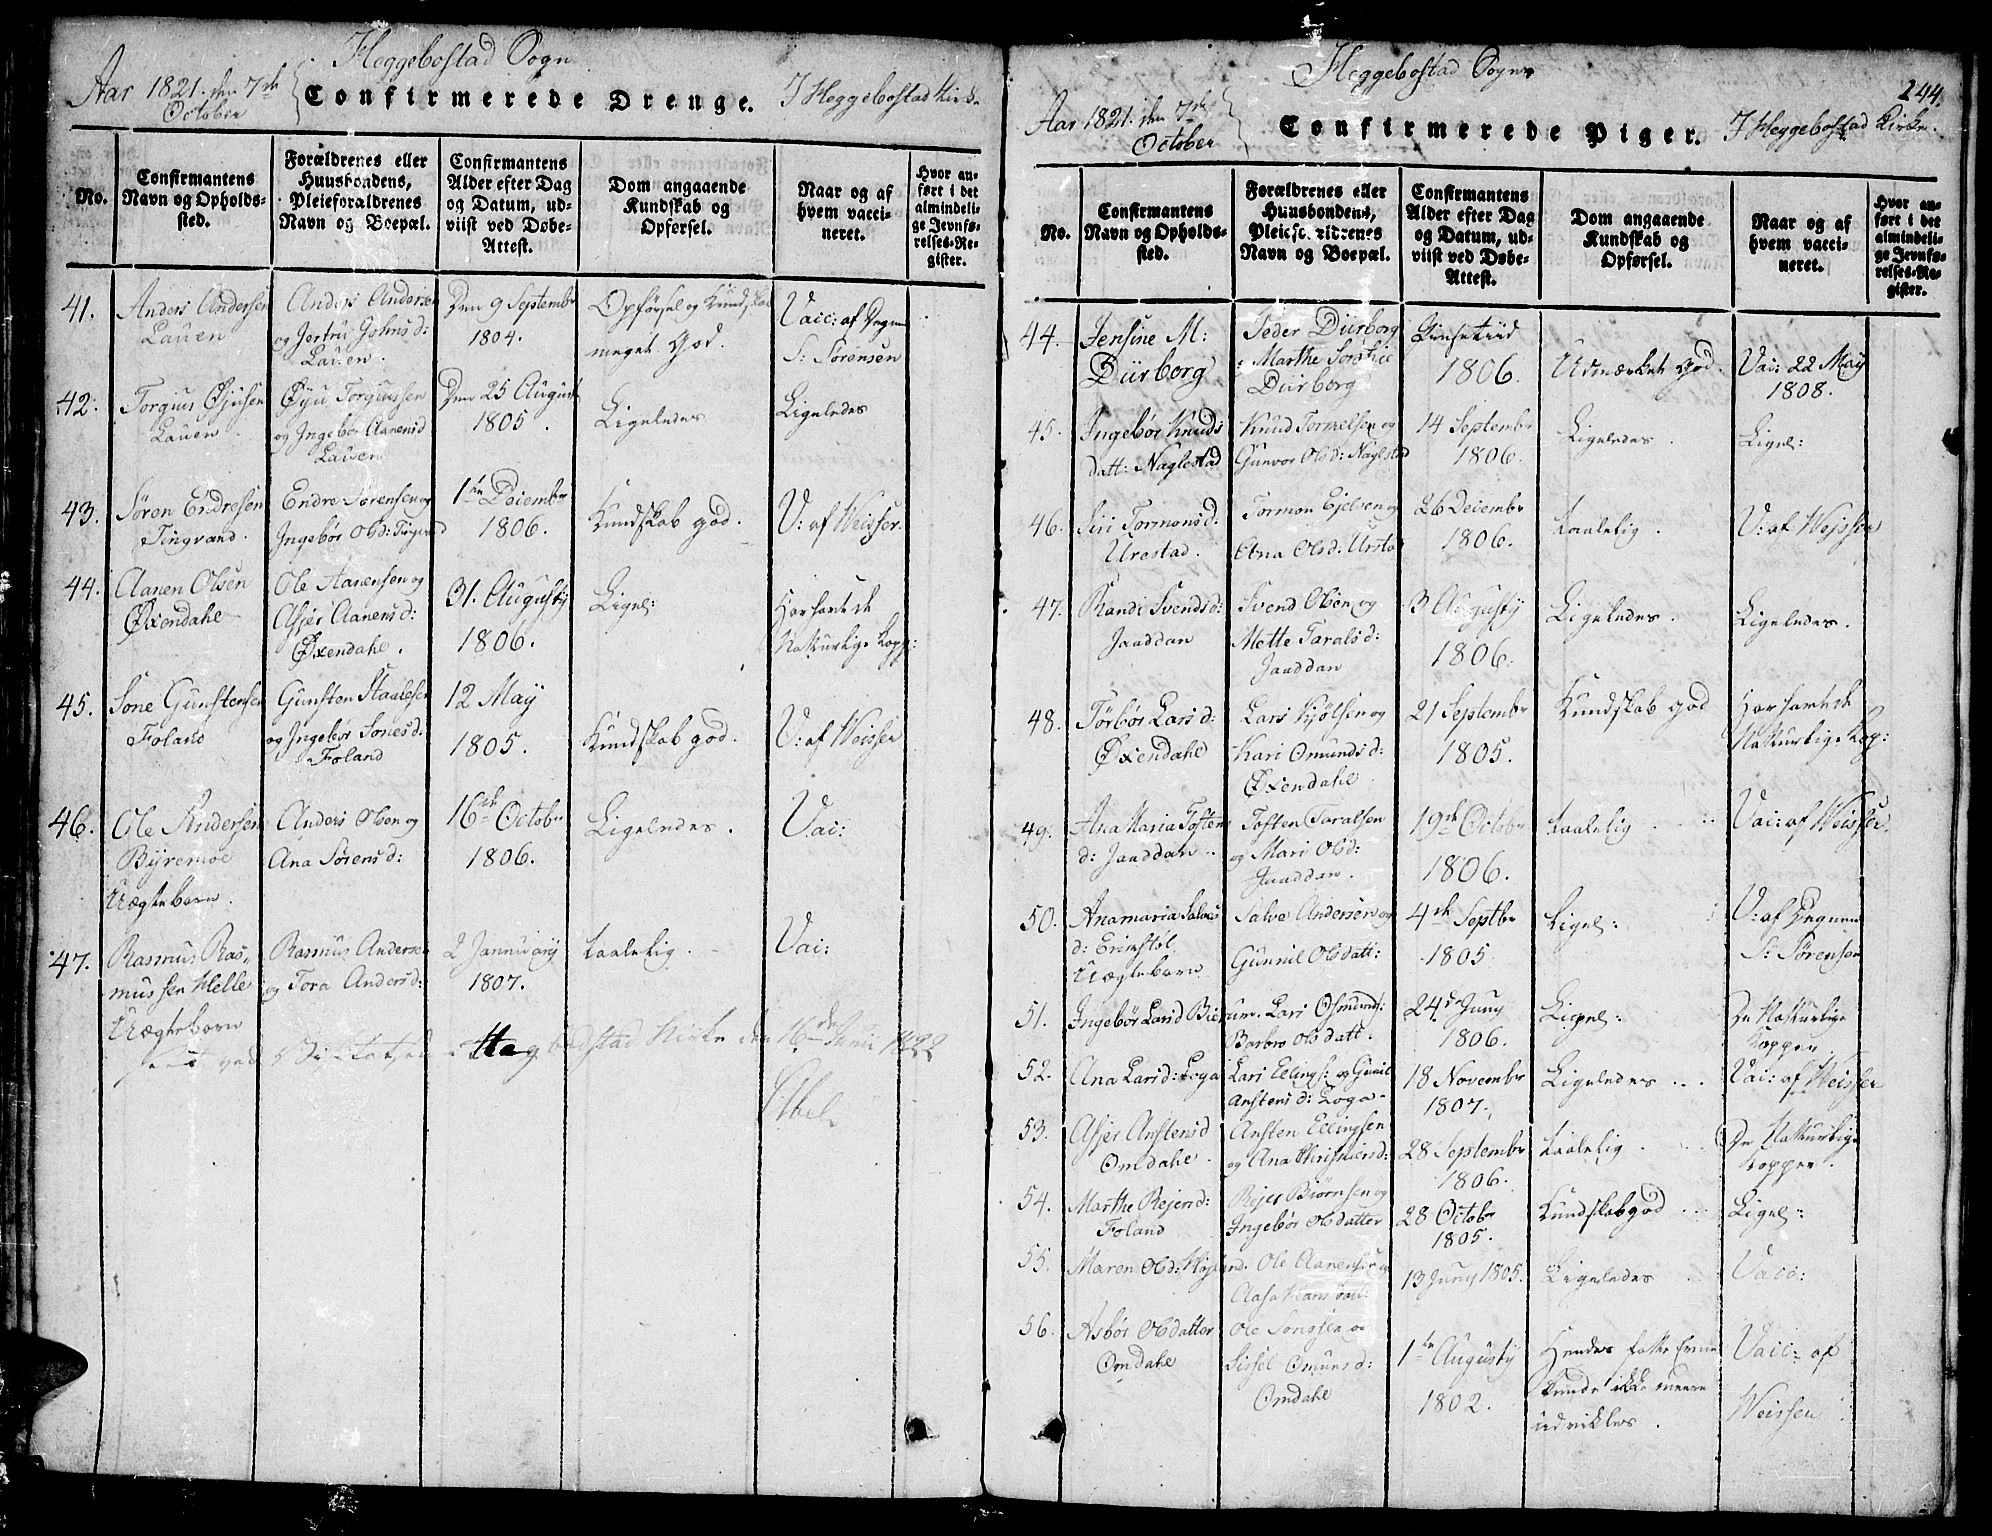 Heggebostad Sogn
Aar 1821. den 7de
October
Confirmerede Drenge.
I Heggebostad Kirke
No.
Confirmantens
Navn og Opholds-
sted.
Forældrenes eller
Huusbondens,
Pleieforældrenes
Navn og Boepæl.
Confirmantens
Alder efter Dag
og Datum, ud-
viist ved Døbe-
Attest.
Dom angaaende
Kundskab og
Opførsel.
Naar og af
hvem vacci-
neret.
Hvor an-
ført i det
almindeli-
ge Jevnfø-
relses-Re-
gister.
41.
Anders Andersen
Lauen
Anders Andersen
og Jertru Johnsd:
Lauen.
Den 9 Septembr
1804.
Opførsel og Kundskab
meget God.
Vacc: af Degnen
S: Sørensen
42.
Torgius Øjusen
Lauen.
Øyu Torgiussen
og Ingebør Aanensd
Lauen
Den 25 August
1805.
Ligeledes
Ligeledes
43.
Søren Endresen
Tingvand.
Endre Sørensen og
Ingebør Olsd: Tingvand
1ste Decembr
1806.
Kundskab god.
V: af Weisser.
44.
Aanen Olsen
Øxendahl
Ole Aanensen og
Asjer Aanensd:
Øxendahl.
31. Augusty
1806.
Ligel:
Har havt de
Naturlige Kopp:
45.
Sone Gunstensen
Foland
Gunsten Staalesen
og Ingebør Sonesd:
Foland
12 May
1805.
Kundskab god.
V: af Weisser
46.
Ole Andersen
Byremoe
Uægteborn.
Anders Olsen og
Ana Sørensd:
16de Octobr
1806.
Ligeledes.
Vac:
47.
Rasmus Ras-
mussen Helle
Uægteborn
Rasmus Andersen
og Tora Andersd:
2 January
1807.
taalelig.
Vac:
Seet ved Visitatsen i Heggebostad Kirke den 16de Juni 1822
Heggebostad Sogn
244.
Aar 1821. den 7de
October
Confirmerede Piger.
I Heggebostad Kirke.
No.
Confirmantens
Navn og Opholds-
sted.
Forældrenes eller
Huusbondens,
Pleieforældrenes
Navn og Boepæl.
Confirmantens
Alder efter Dag
og Datum, ud-
viist ved Døbe-
Attest.
Dom angaaende
Kundskab og
Opførsel.
Naar og af
hvem vacci-
neret.
Hvor an-
ført i det
almindeli-
ge Jevnfø-
relses-Re-
gister.
44.
Jensine M:
Dürborg
Peder Dürborg
Marthe Sophie
Dürborg
Pinsetiid
1806.
Udmærket God.
Vac: 22 May
1808.
45.
Ingebør Knuds
datt: Naglestad
Knud Tormelsen og
Gunvor Olsd: Naglestad
14 Septembr
1806.
Ligeledes.
Ligel:
46.
Siri Tormonsd:
Urestad.
Tormon Ejelsen og
Ana Olsd: Ursta
26 Decembr
1806.
taalelig.
V: af Wejsser
47.
Randi Svendsd:
Jaaddan
Svend Olsen og
Mette Taralsd:
Jaaddan
3 Augusty
1806.
Ligeledes.
Ligeledes.
48.
Tørbør Larsd:
Øxendahl
Lars Kjølsen og
Kari Omundsd:
Øxendahl.
21 Septembr
1805.
Kundskab god
Har havt de
Naturlige Kop:
49.
Ana Maria Tosten
d: Jaaddan
Tosten Taralsen
og Mari Olsd:
Jaaddan.
19de Octobr
1806.
taalelig
Vac: af Weisser.
50.
Anamaria Salves
d: Erikstøl
Uægteborn
Salve Andersen og
Gunnil Olsdatt:
4de Septbr
1805
Ligel:
V: af Degnen
S: Sørensen
51.
Ingebør Larsd Bierum.
Lars Osmunds:
Barbro Olsdatt.
24de Juny
1806.
Ligel:
De Naturlige
Kopper
52.
Ana Larsd: Loga
Lars Ellings: og Gunil
Anstensd: Loga
18 Novembr
1807.
Ligeledes
Vac: af Weisser
53.
Asjer Anstensd
Omdahl.
Ansten Ellingsen
og Ana
28 Septembr
1806.
taalelig
De Naturlige
Kopper.
54.
Marthe Rejersd:
Foland
Rejer Biørnsen og
Ingebør Olsdatter
28 Octobr
1805.
Kundskab god
Ligel:
55.
Maren Olsd:
Ole Aanensen og
Aasa
13 Juny 1805.
Ligeledes
Vacc:
56.
Asbør Olsdatter
Omdahl
Ole Sonesen og
Sissel Omunsd:
Omdahl
1ste Augusty
1802.
Hendes
kunde ikke meere
udvikles.
Vacc: af
Weisser